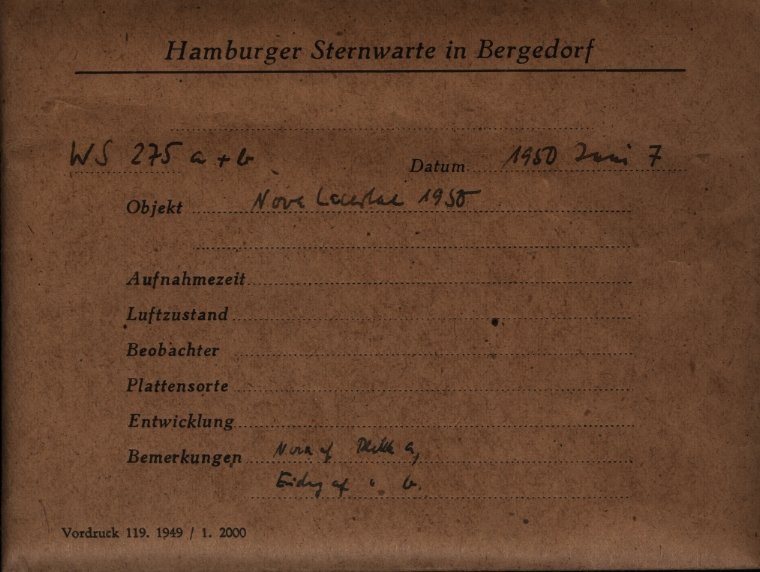 Hamburger Sternwarte in Bergedorf
WS 275 a + b Datum 1950 Juni 7
Objekt Nova Lacertae 1950
Aufnahmezeit
Luftzustand
Beobachter
Plattensorte
Entwicklung
Bemerkungen Nova auf Platte a,
auf " b.
Vordruck 119. 1949 / 1. 2000